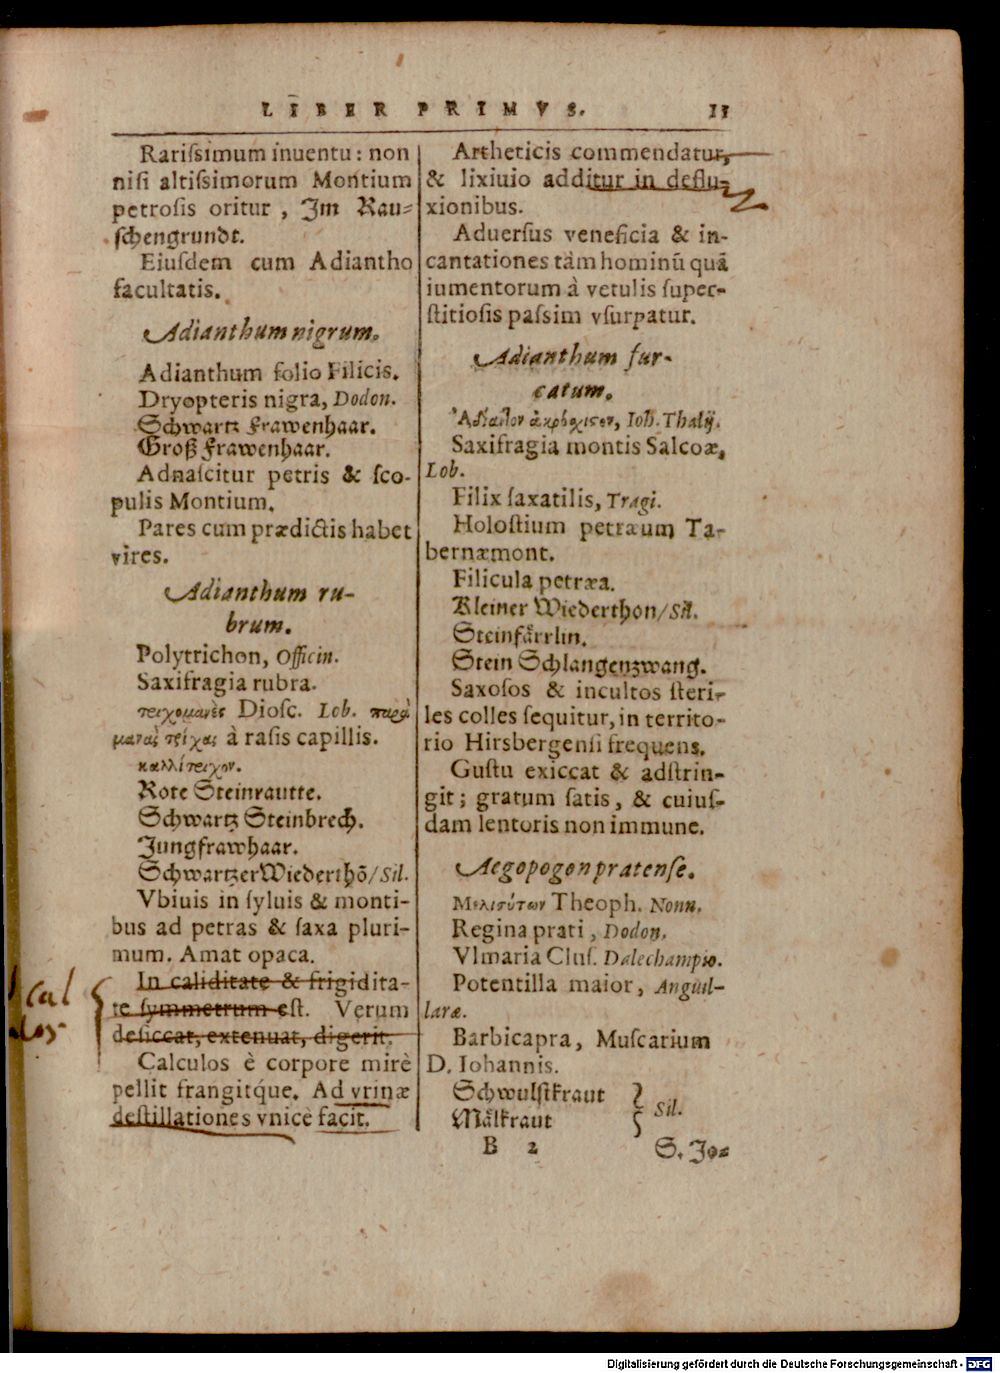 LIBER PRIMVS. 11
Rarissimum inuentu: non
nisi altissimorum Montium
petrosis oritur, Im Rau-
schengrundt.
Eiusdem cum Adiantho
facultatis.
Adianthum nigrum.
Adianthum folio Filicis.
Dryopteris nigra, Dodon.
Schwartz Frawenhaar.
Groß Frawenhaar.
Adnascitur petris & sco-
pulis Montium.
Pares cum prædictis habet
vires.
Adianthum ru-
brum.
Polytrichon, Officin.
Saxifragia rubra.
τριχομανὲς Diosc. Lob. παρὰ
à rasis capillis.
καλλίτριχον.
Rote Steinrautte.
Schwartz Steinbrech.
Jungfrawhaar.
Schwartzer Wiederthõ/ Sil.
Vbiuis in syluis & monti-
bus ad petras & saxa pluri-
mum. Amat opaca.
In caliditate & frigidita-
te symmetrum est. Verum
desiccat, extenuat, digerit.
Cal
Calculos è corpore mirè
pellit frangitq́ue. Ad vrinæ
destillationes vnicè facit.
Artheticis commendatur,
& lixiuio additur in deflu-
xionibus.
Aduersus veneficia & in-
cantationes tàm hominũ quã
iumentorum à vetulis super-
stitiosis passim vsurpatur.
Adianthum fur-
catum.
Ἀδίαντον ἀκρόχισον, Ioh. Thalij.
Saxifragia montis Salcoæ,
Lob.
Filix saxatilis, Tragi.
Holostium petræum Ta-
bernæmont.
Filicula petræa.
Kleiner Wiederthon/ Sil.
Steinfårrlin.
Stein Schlangenzwang.
Saxosos & incultos steri-
les colles sequitur, in territo-
rio Hirsbergensi frequens.
Gustu exiccat & adstrin-
git; gratum satis, & cuius-
dam lentoris non immune.
Aegopogon pratense.
Theoph. Nonn.
Regina prati, Dodon.
Vlmaria Clus. Dalechampio.
Potentilla maior, Anguil-
laræ.
Barbicapra, Muscarium
D. Iohannis.
Schwulstkraut
Målkraut } Sil.
B 2 S. Jo=
Digitalisierung gefördert durch die Deutsche Forschungsgemeinschaft - DFG